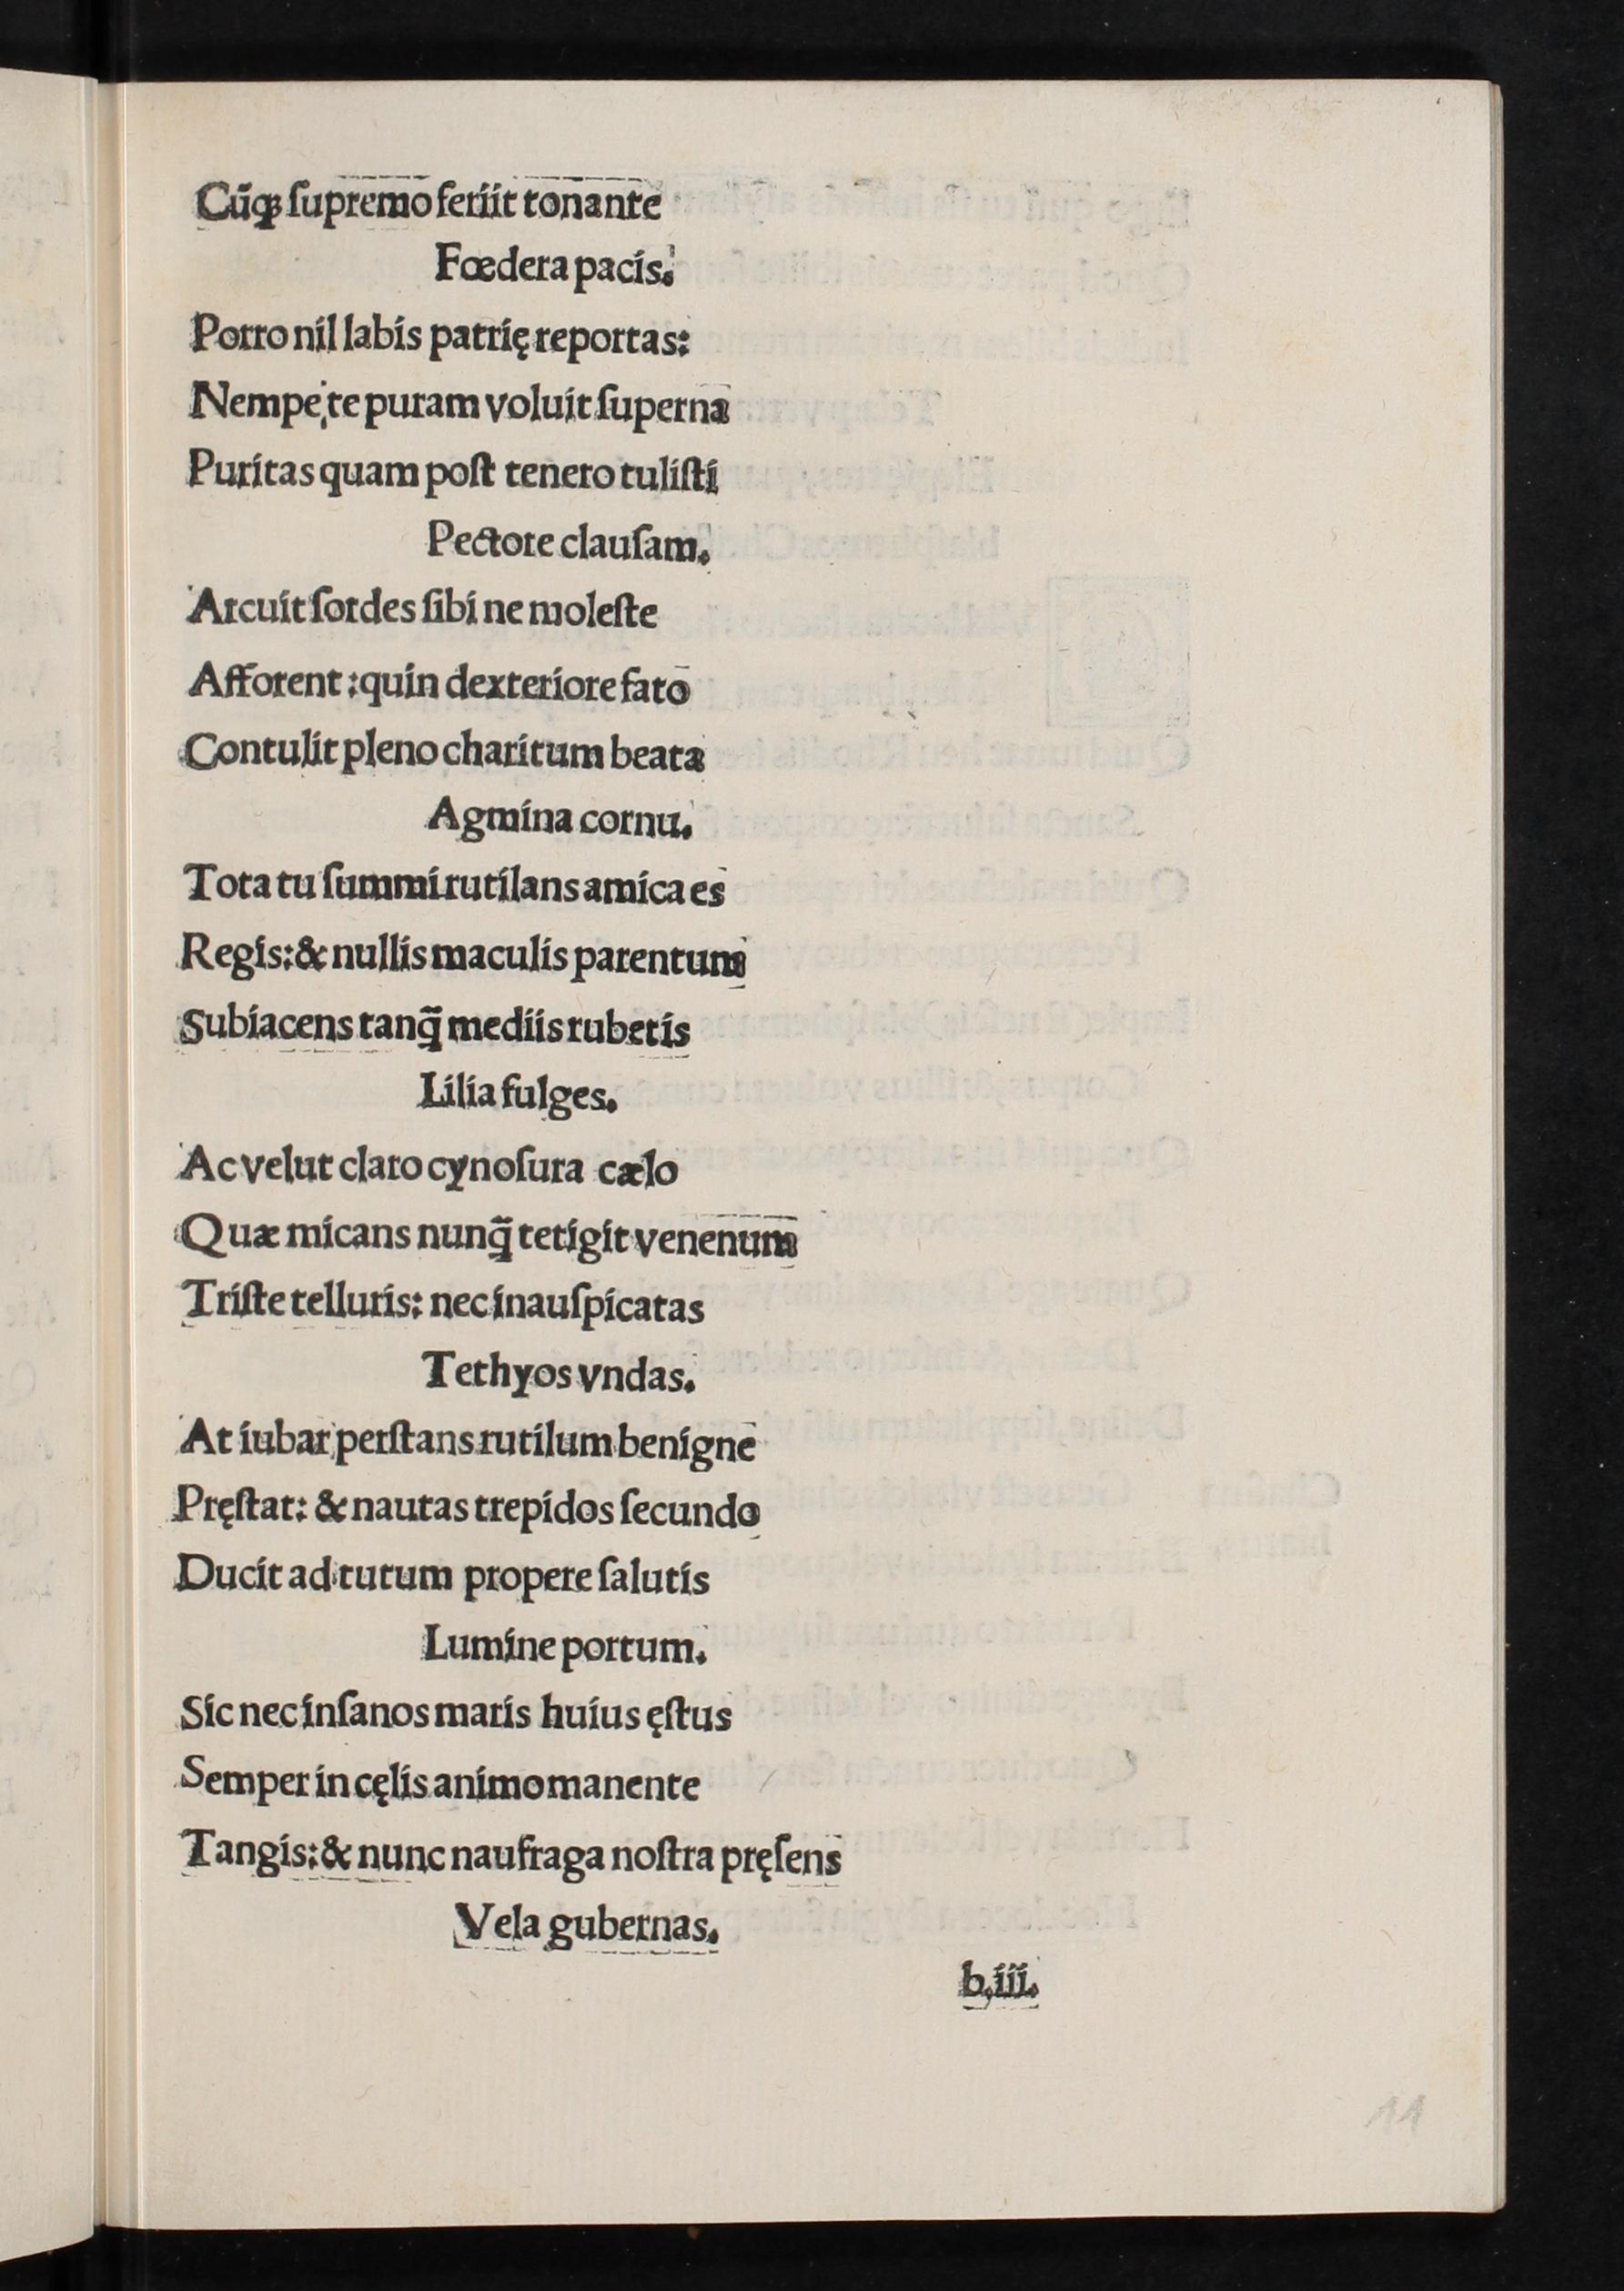 Cūqꝫ ſupremo feriit tonante
Fœdera pacis.
Porro nil labis patrię reportas:
Nempe te puram voluit ſuperna
Puritas quam poſt tenero tuliſti
Pectore clauſam.
Arcuit ſordes ſibi ne moleſte
Afforent: quin dexteriore fato
Contulit pleno charitum beata
Agmina cornu.
Tota tu ſummi rutilans amica es
Regis: & nullis maculis parentum
Subiacens tanq̃ mediis rubetis
Lilia fulges.
Ac velut claro cynoſura cælo
Quæ micans nunq̃ tetigit venenum
Triſte telluris: nec inauſpicatas
Tethyos vndas.
At iubar perſtans rutilum benigne
Pręſtat: & nautas trepidos ſecundo
Ducit ad tutum propere ſalutis
Lumine portum.
Sic nec inſanos maris huius ęſtus
Semper in cęlis animo manente
Tangis: & nunc naufraga noſtra pręſens
Vela gubernas.
b.iii.
11